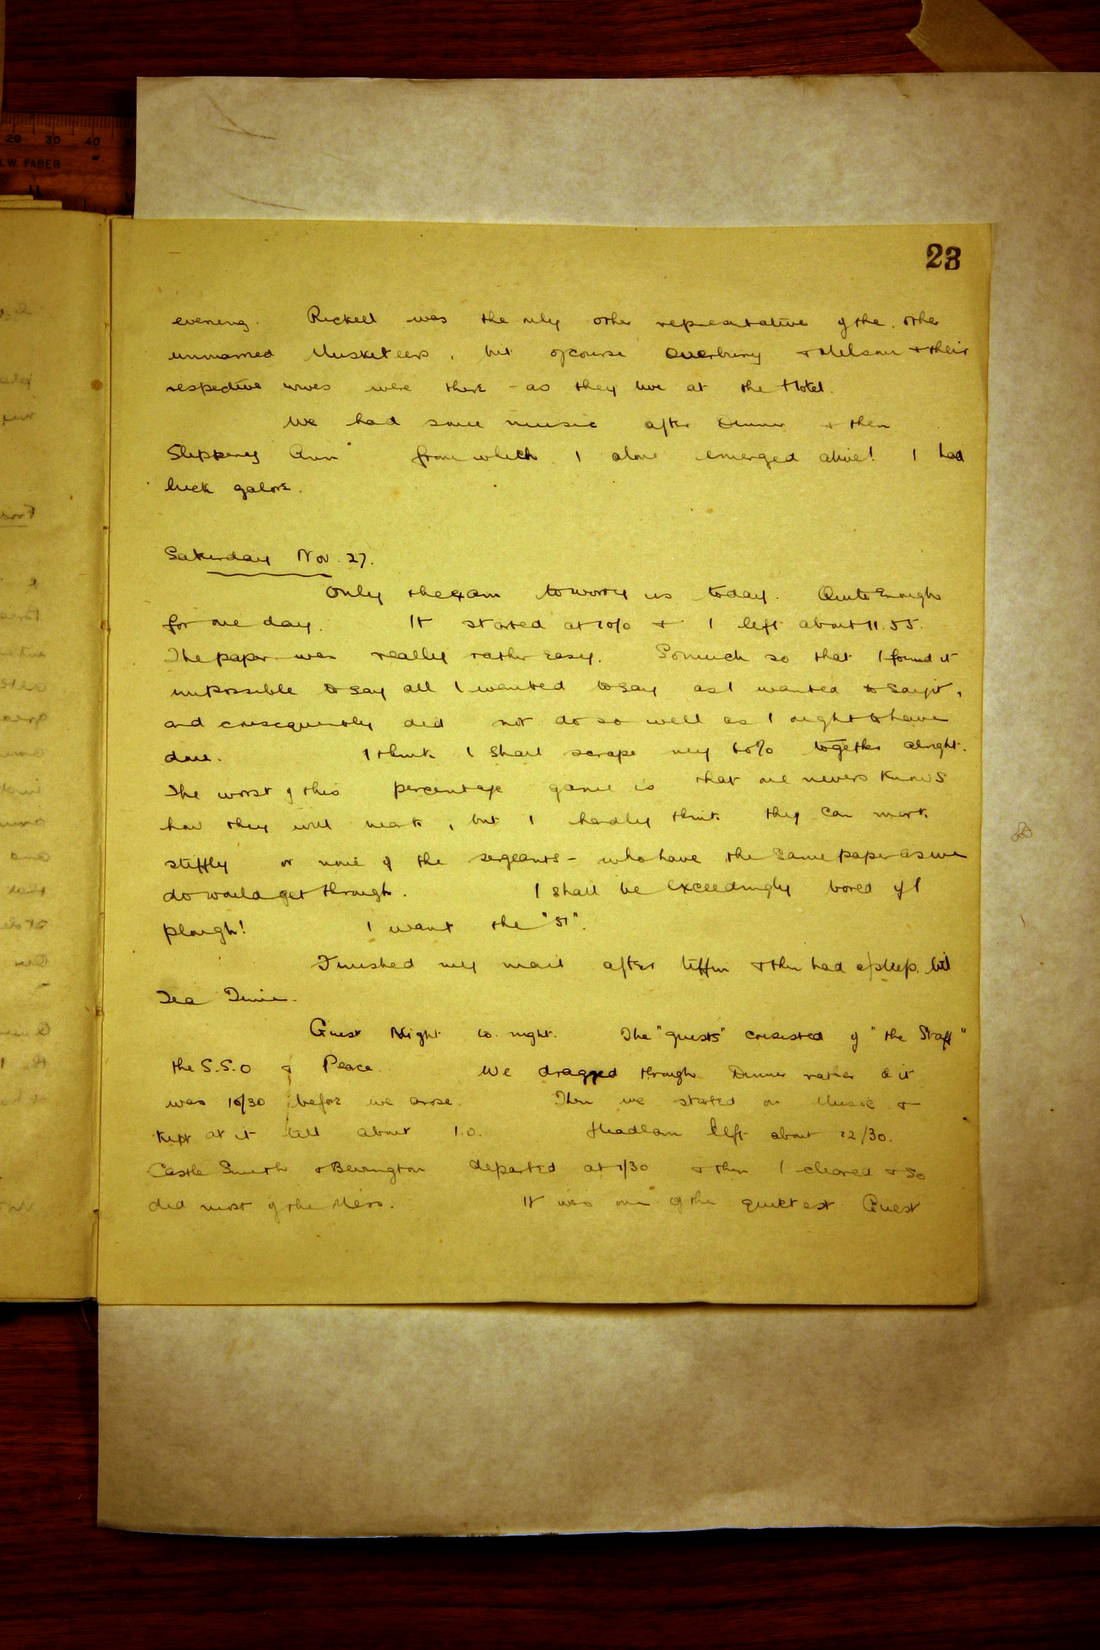 20 30 40
W. FABER
23
evening. Rickett was the only other representative of the other
unmarried Musketeers, but of course Overbury & Melsom & their
respective wives were there - as they live at the Hotel.
We had some music after Dinner & then
Slippery Ann from which I alone emerged alive! I had
luck galore.
Saturday Nov. 27.
Only the exam to worry us today. Quite enough
for one day. It started at 10/0 & I left about 11.55.
The paper was really rather easy. So much so that I found it
impossible to say all I wanted to say as I wanted to say it,
and consequently did not do so well as I ought to have
done. I think I shall scrape my 60% together alright.
The worst of this percentage game is that one nevers knows
how they will mark, but I hardly think they can mark
stiffly or none of the sergeants - who have the same paper as we
do would get through. I shall be exceedingly bored if I
plough! I want the "S1".
Finished my mail after tiffin & then had a sleep till
Tea Time.
Guest Night to-night. The "guests" consisted of "the Staff"
the S.S.O & Peace. We dragged through Dinner rather & it
was 10/30 before we arose. Then we started on Music &
kept at it till about 1.0. Headlam left about 12/30.
Castle Smith & Bevington departed at 1/30 & then I cleared & so
did most of the Mess. It was one of the quietest Guest